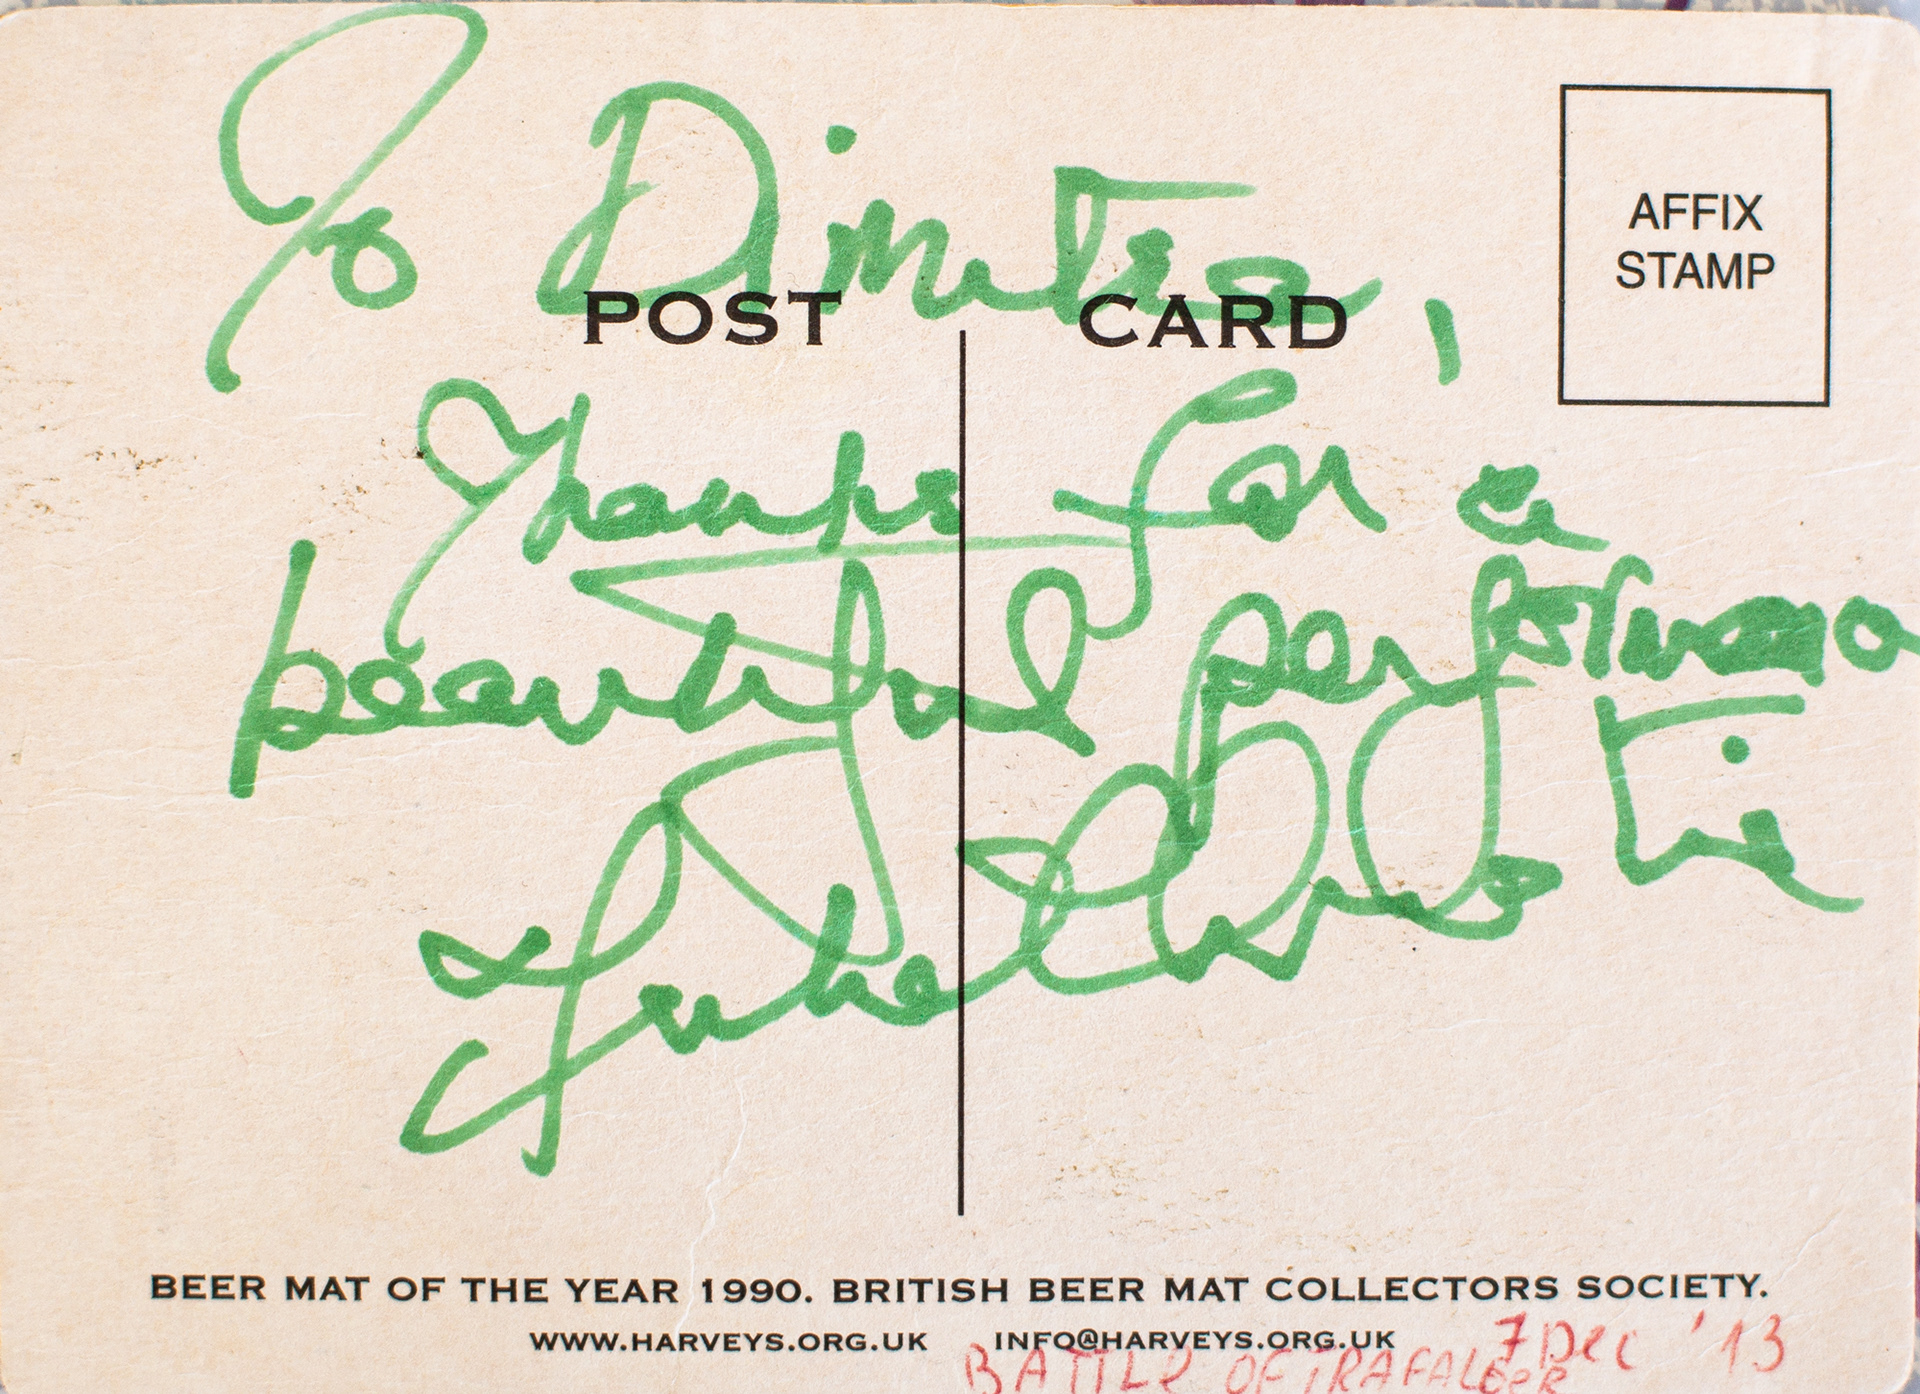 To Dimitra,
AFFIX
STAMP
POST CARD
Thanks for a
beautiful performance
BEER MAT OF THE YEAR 1990. BRITISH BEER MAT COLLECTORS SOCIETY.
WWW.HARVEYS.ORG.UK INFO@HARVEYS.ORG.UK
7 Dec '13
BATTLE OF TRAFALGER